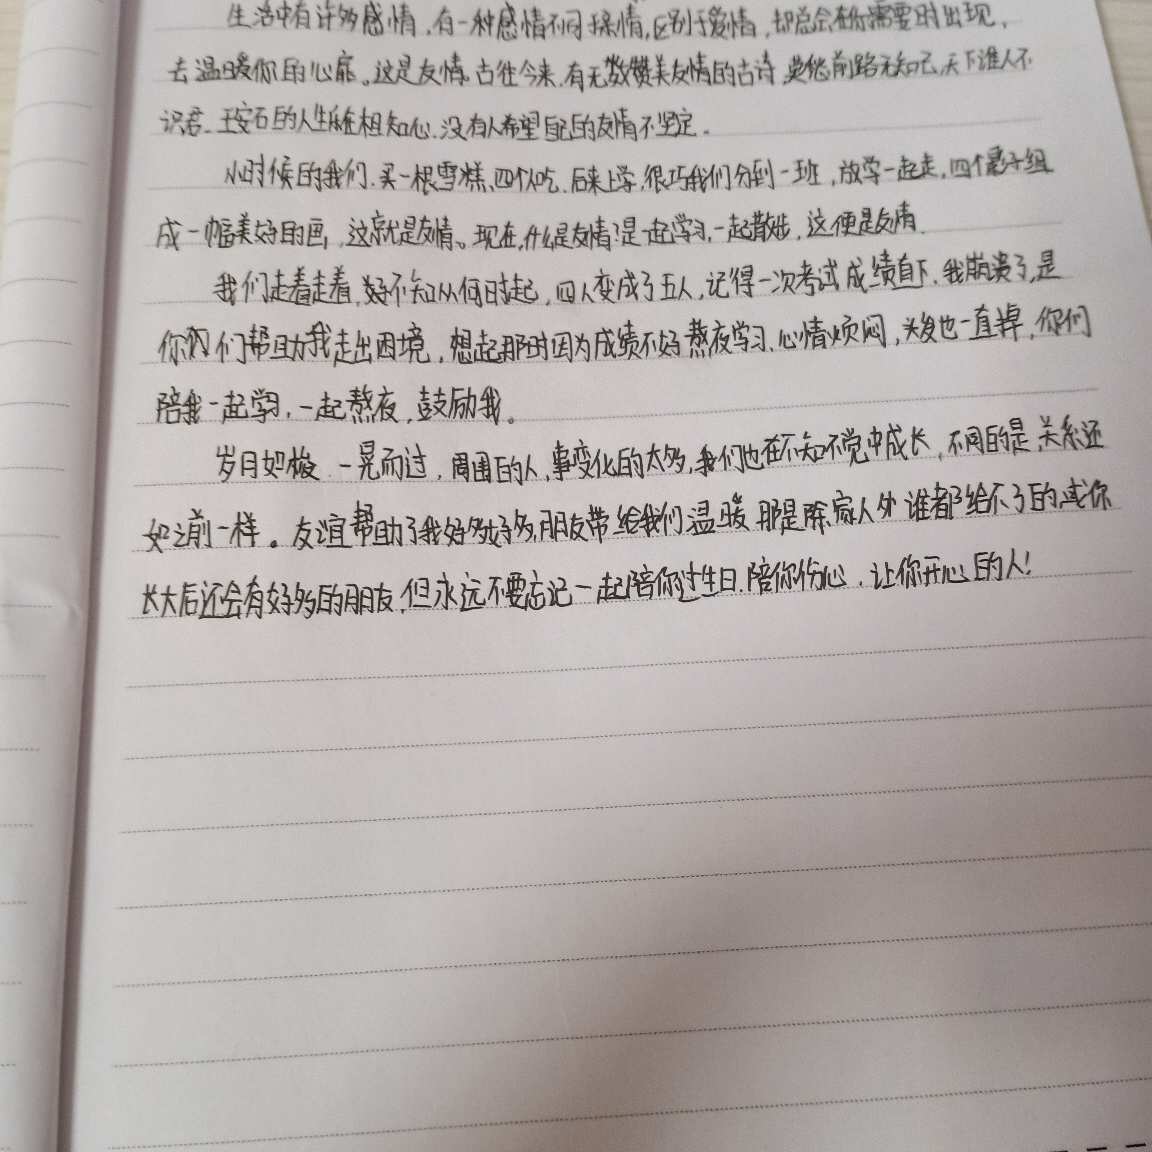 生活中有许多感情,有一种感情不同于亲情,区别于爱情,却总会在你需要时出现,
去温暖你的心扉。这是友情。古往今来,有无数赞美友情的古诗,莫愁前路无知己,天下谁人不
识君.王安石的人生乐在相知心.没有人希望自己的友情不坚定。
小时候的我们.买一根雪糕,四个人吃.后来上学,很巧我们分到一班,放学一起走,四个影子组
成一幅美好的画,这就是友情。现在,什么是友情?是一起学习,一起散步,这便是友情.
我们走着走着,好不知从何时起,四人变成了五人,记得一次考试成绩直下.我崩溃了,是
你们帮助我走出困境,想起那时因为成绩不好熬夜学习、心情烦闷,头发也一直掉,你们
陪我一起学习,一起熬夜,鼓励我。
岁月如梭 一晃而过,周围的人,事变化的太多,我们也在不知不觉中成长,不同的是,关系还
如之前一样。友谊帮助了我好多好多,朋友带给我们温暖,那是除家人外谁都给不了的,或你
长大后还会有好多的朋友,但永远不要忘记一起陪你过生日.陪你伤心,让你开心的人!